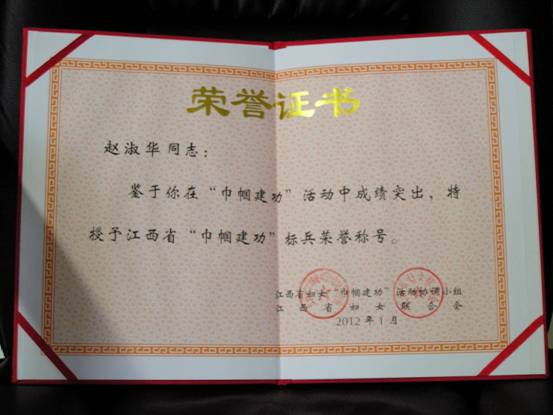 荣誉证书
赵淑华同志：
鉴于你在“巾帼建功”活动中成绩突出，特
授予江西省“巾帼建功”标兵荣誉称号。
江西省妇女“巾帼建功”活动协调小组
江西省妇女联合会
2012年1月